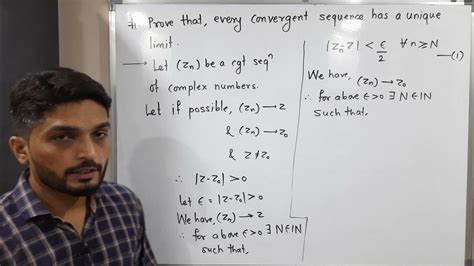 # Prove that, every convergent sequence has a unique
limit.
→ Let (zn) be a cgt seqⁿ
of complex numbers.
Let if possible, (zn) → z
& (zn) → z₀
& z ≠ z₀
∴ |z-z₀| > 0
Let ϵ = |z-z₀| > 0
We have, (zn) → z
∴ for above ϵ>0 ∃ N∈IN
such that,
|zn-z| < ϵ/2 ∀ n ≥ N —(1)
We have, (zn) → z₀
∴ for above ϵ>0 ∃ N∈IN
such that,